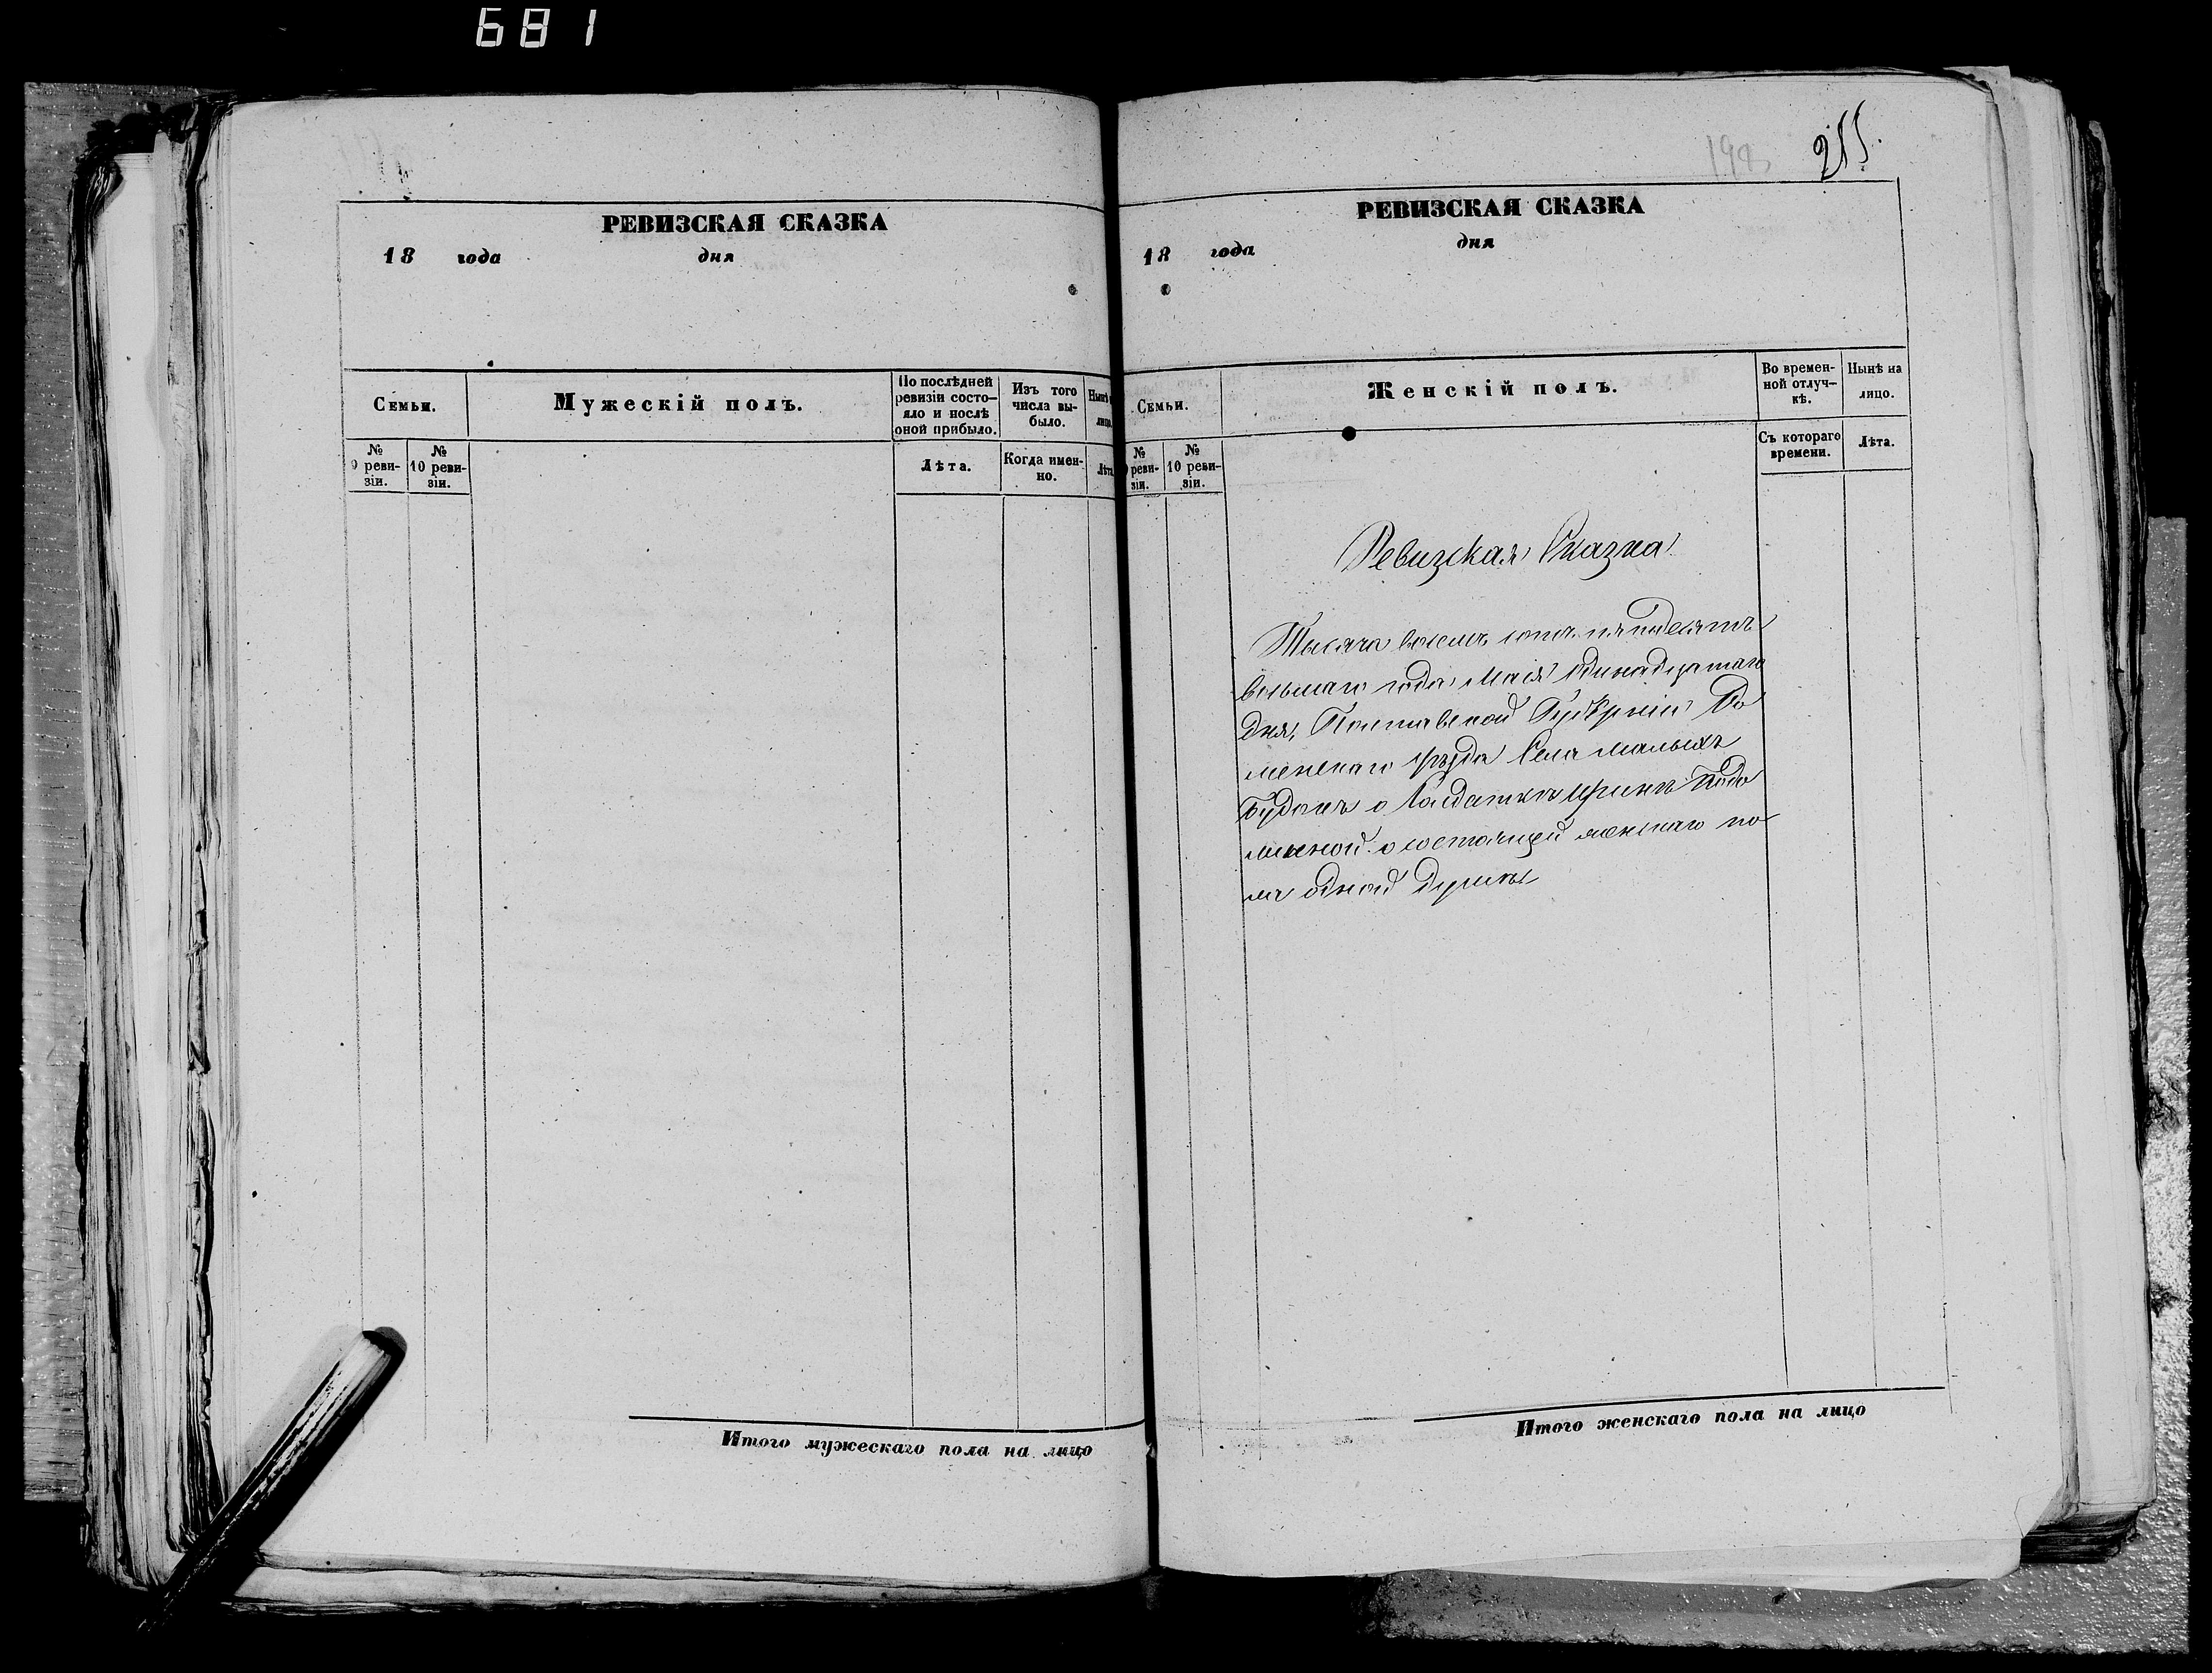 681
РЕВИЗСКАЯ СКАЗКА
18 года дня
Семьи.
Мужескій полъ.
По послѣдней ревизіи состо-
яло и послѣ
оной прибыло.
Изъ того
числа вы-
было.
Нынѣ
лицо.
№
9 реви-
зіи.
№
10 реви-
зіи.
Лѣта.
Когда имен-
но.
Лѣта
Итого мужескаго пола на лицо
198 255.
РЕВИЗСКАЯ СКАЗКА
18 года дня
Семьи.
Женскій полъ.
Во времен-
ной отлуч-
кѣ.
Нынѣ на
лицо.
№
реви-
зіи.
№
10 реви-
зіи.
Съ котораго
времени.
Лѣта.
Ревизская Сказка
Тысяча восемь сотъ пятьдесятъ
восьмаго года Маія одинадцатаго
дня, Полтавской Губѣрніи Ро
менскаго уѣзда Села Малыхъ
Будокъ о Солдаткѣ Иринѣ
о состоящей женскаго по
ла одной души
Итого женскаго пола на лицо